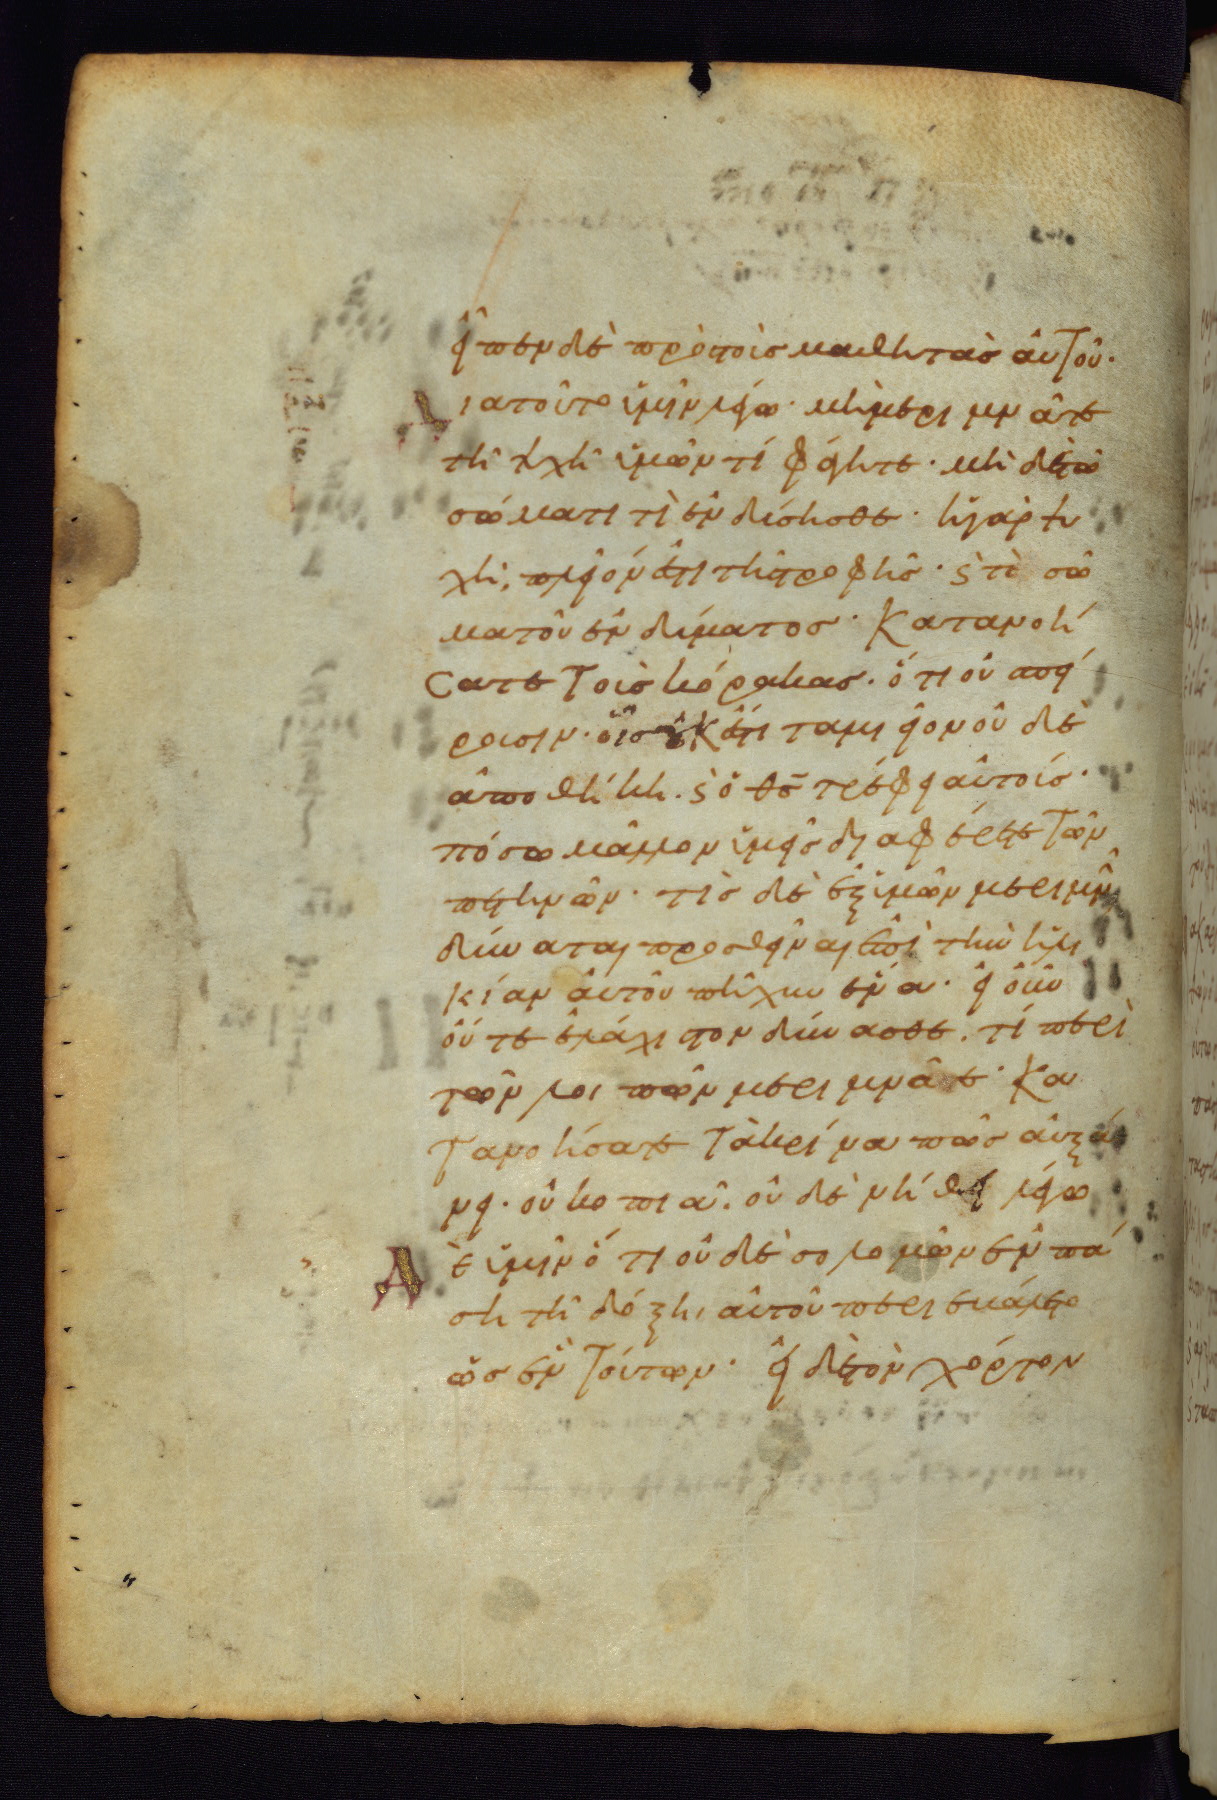 εἶπεν δὲ πρὸς τοὺς μαθητὰς αὐτοῦ·
Διατοῦτο ὑμῖν λέγω· μὴ μεριμνᾶτε
τῇ ψυχῇ ὑμῶν τί φάγητε· μὴ δὲ τῷ
σώματι τί ἐνδύσησθε· ἡ γὰρ ψυ
χὴ, πλεῖόν ἐστι τῆς τροφῆς· ϛ τὸ σῶ
μα τοῦ ἐνδύματος· Κατανοή
σατε τοὺς κόρακας· ὅτι οὐ σπεί
ρουσιν· οἷς οὐκ ἔστι ταμιεῖον οὐ δὲ
ἀποθήκη· ϛ ὁ θς τρέφει αὐτούς·
πόσω μᾶλλον ὑμεῖς διαφέρετε τῶν
πετεινῶν· τίς δὲ ἐξ ὑμῶν μεριμνῶν
δύναται προσθεῖναι ἐπὶ τὴν ἡλι
κίαν αὐτοῦ πῆχυν ἕνα· εἰ οὖν
οὔτε ἐλάχιστον δύνασθε. τί περὶ
τῶν λοιπῶν μεριμνᾶτε· Κα
τανοήσατε τὰ κρίνα πῶς αὐξά
νει· οὐ κοπιᾷ· οὐ δὲ νήθει λέγω
Δὲ ὑμῖν ὅτι οὐδὲ σολομῶν ἐν πά
σῃ τῇ δόξῃ αὐτοῦ περιεβάλετο
ὡς ἓν τούτων· εἰ δὲ τὸν χόρτον